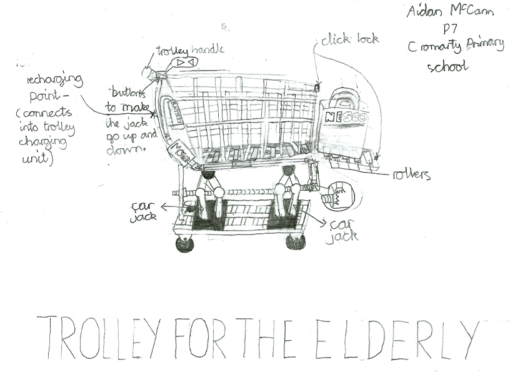 Aidan McCann
P7
Cromarty Primary
school
trolley handle
click lock
recharging
point-
(connects
into trolley
charging
unit)
buttons
to make
the jack
go up and
down.
NESCO
rollers
car
jack
car
jack
TROLLEY FOR THE ELDERLY